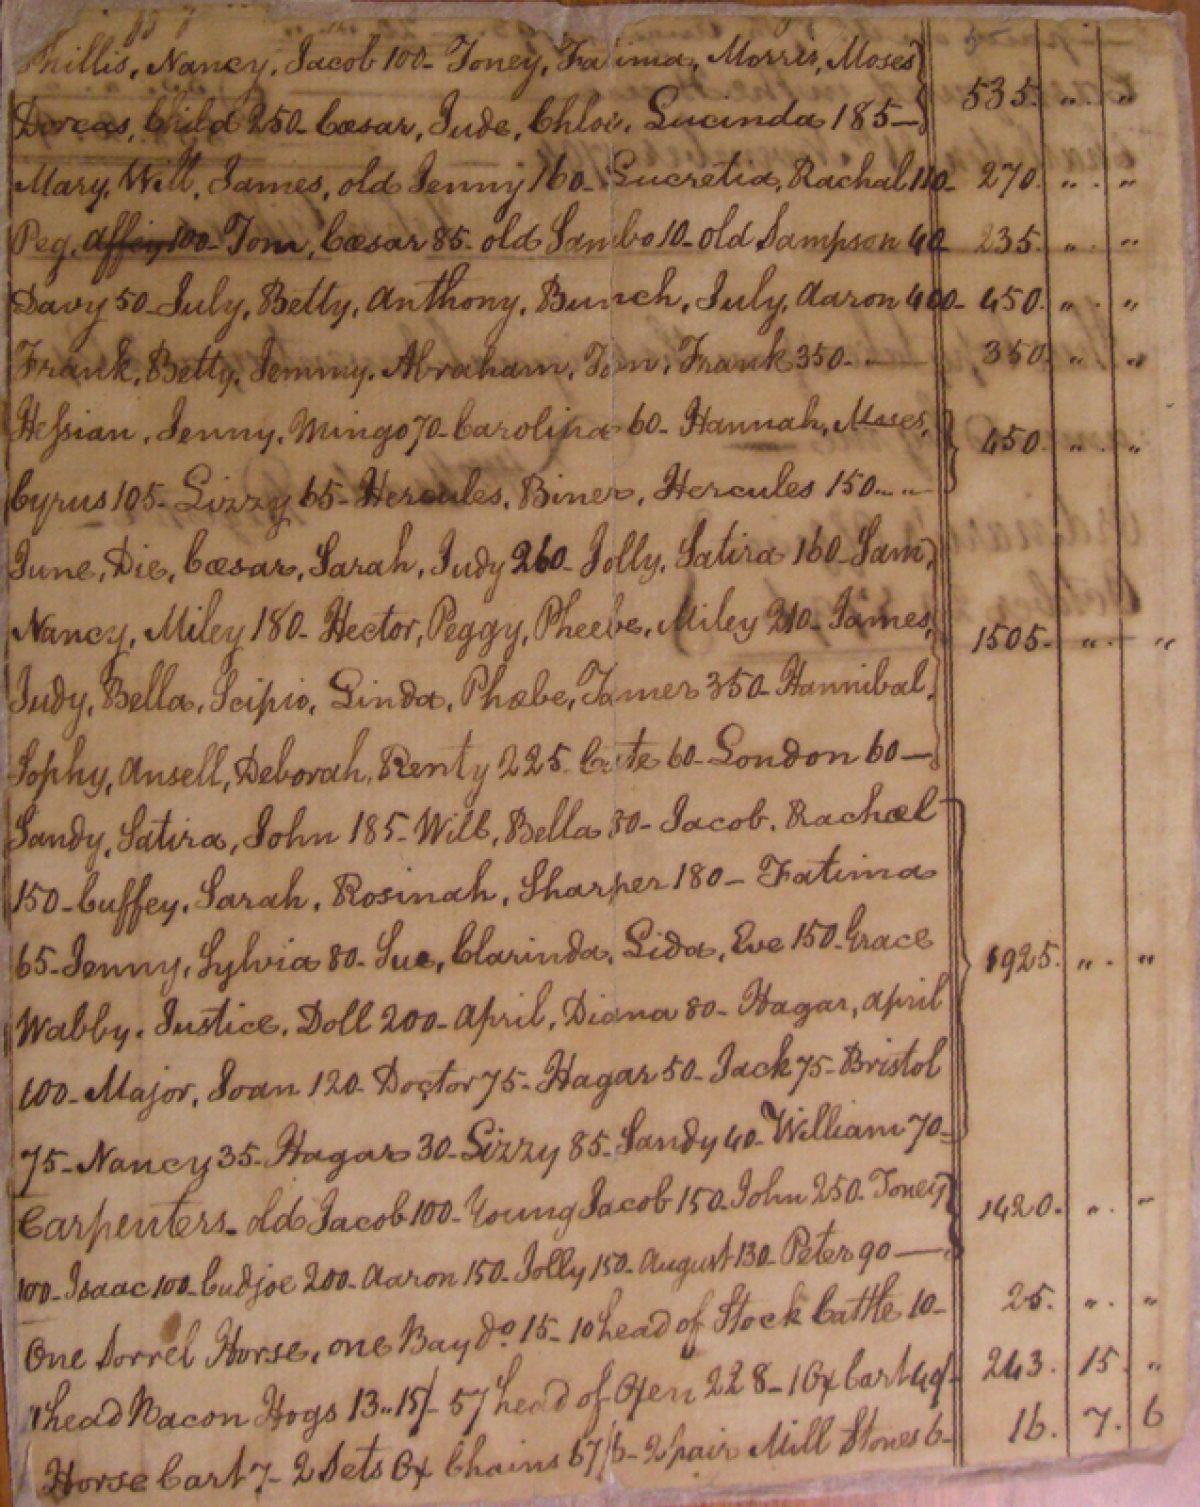 Phillis, Nancy, Jacob 100- Toney, Fatima, Morris, Moses } 535. " . "
Dorcas, Child 250- Cæsar, Jude, Chloe, Lucinda 185—
Mary, Will, James, old Jenny 160- Lucretia, Rachal 110- 270. " . "
Peg, Affey 100- Tom, Cæsar 85- old Sambo 10- old Sampson 40 235. " . "
Davy 50- July, Betty, Anthony, Bunch, July, Aaron 400- 450. " . "
Frank, Betty, Jemmy, Abraham, Tom, Frank 350- — 350. " . "
Hessian, Jenny, Mingo 70- Carolina 60- Hannah, Moses, } 450. " . "
Cyrus 105- Lizzy 65- Hercules, Biner, Hercules 150
June, Die, Cæsar, Sarah, Judy 260- Jolly, Satira 160- Sam,
Nancy, Miley 180- Hector, Peggy, Pheebe, Miley 210- James, } 1505. " . "
Judy, Bella, Scipio, Linda, Phæbe, Tamer 350- Hannibal,
Sophy, Ansell, Deborah, Renty 225. Cate 60- London 60—
Sandy, Satira, John 185- Will, Bella 80- Jacob, Rachæl
150- Cuffey, Sarah, Rosinah, Sharper 180- Fatima
65- Jenny, Sylvia 80- Sue, Clarinda, Lida, Eve 150- Grace } 1925. " . "
Wabby, Justice, Doll 200- April, Diana 80- Hagar, April
100- Major, Joan 120- Doctor 75- Hagar 50- Jack 75- Bristol
75- Nancy 35- Hagar 30- Lizzy 85- Sandy 40- William 70-
Carpenters- old Jacob 100- Young Jacob 150- John 250- Toney } 1420. " . "
100- Isaac 100- Cudjoe 200- Aaron 150- Jolly 150- August 130- Peter 90—
One Sorrel Horse, one Bay do. 15- 10 head of Stock Cattle 10- 25. " . "
head Bacon Hogs 13..15/- 57 head of Oxen 228- 1 Ox Cart 40/- 243. 15. "
Horse Cart 7- 2 Sets Ox Chains 67/6- 2 pair Mill Stones 6- 16. 7. 6